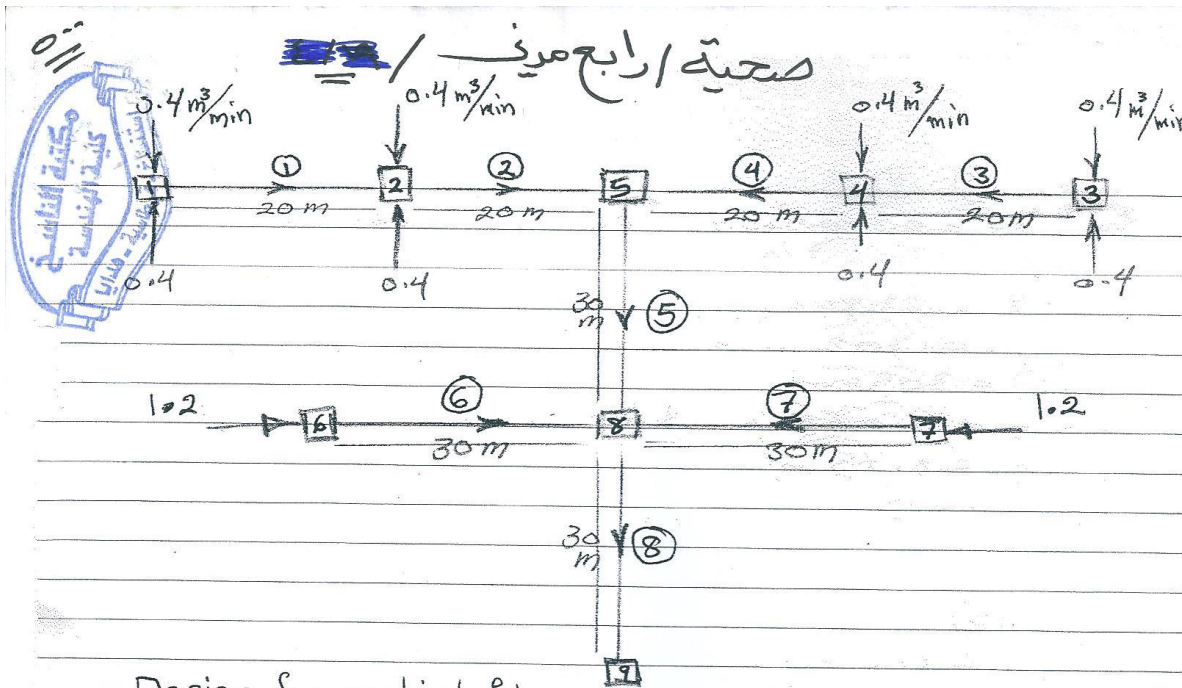 صحية / رابع مدني /
مكتبة الناسخ
كلية الهندسة
0.4 m³/min
0.4 m³/min
0.4 m³/min
0.4 m³/min
1
①
2
②
5
④
4
③
3
20 m
20 m
20 m
20 m
0.4
0.4
0.4
0.4
30 m
⑤
1.2
6
⑥
8
⑦
7
1.2
30 m
30 m
30 m
⑧
9